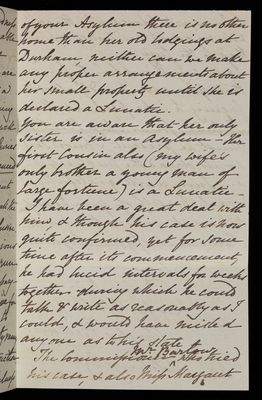 of your Asylum there is no other
home than her old lodgings at
Durham, neither can we make
any proper arrangements about
her small property until she is
declared a Lunatic.
You are aware that her only
Sister is in an Asylum – Her
first Cousin also (my wife's
only brother a young man of
large fortune) is a Lunatic –
I have been a great deal with
him & though his case is now
quite confirmed, yet for some
time after its commencement,
he had lucid intervals for weeks
together during which he could
talk & write as reasonably as I
could, & would have misled
any one as to his state
The Commissioner Mr. Barlow who tried
his case, & also Miss Margaret